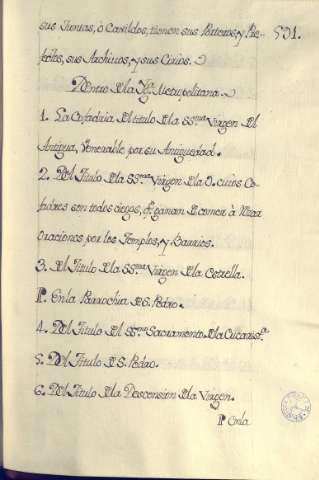 sus Juntas, ò Cavildos, tienen sus Porteros, y Pre-
fectos, sus Archivos, y sus Curios.
591.
Dentro de la Yg.ª Metropolitana.
1. La Cofadria del titulo de la SS.ma Virgen de la
Antigua, Venerable por su Antiguedad.
2. Del Titulo de la SS.ma Virgen de la O. cuios Co-
fadres son todos ciegos, q̃. ganan de comer à rezar
Oraciones por los Templos, y Barrios.
3. Del Titulo de la SS.ma Virgen de la Estrella.
P. En la Parrochia de S. Pedro.
4. Del Titulo del SS.mo Sacramento de la Eucharist.ª
5. Del Titulo de S. Pedro.
6. Del Titulo de la Descension de la Virgen.
P En la